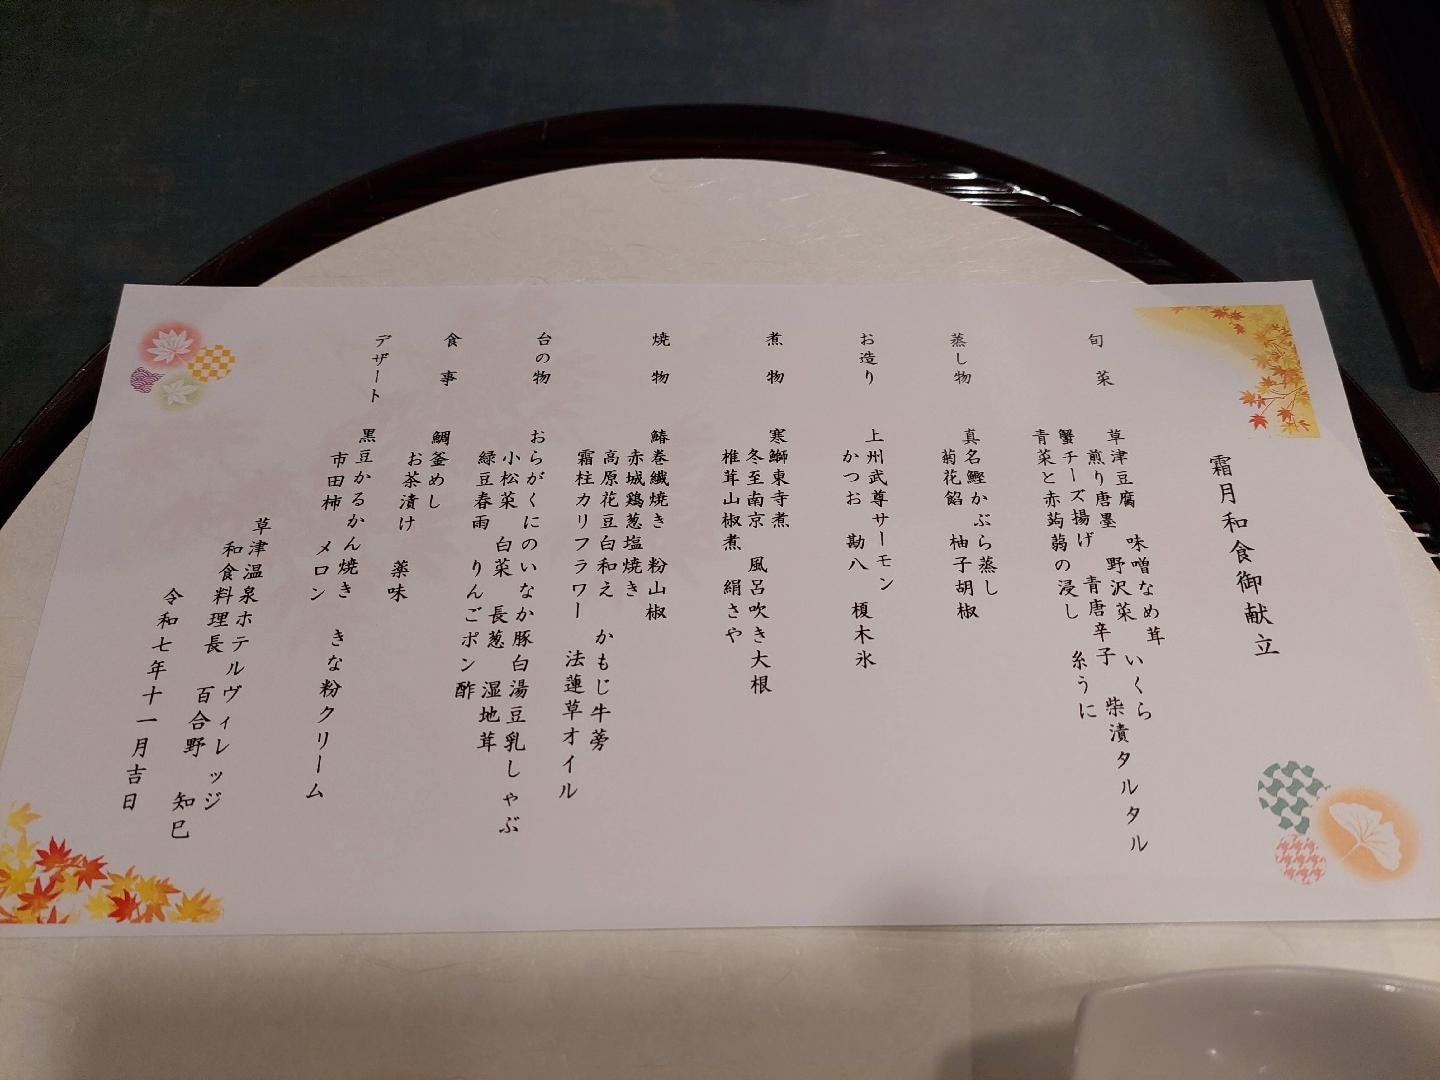 霜月和食御献立
旬菜
草津豆腐 味噌なめ茸 いくら
煎り唐墨 野沢菜 柴漬タルタル
蟹チーズ揚げ 青唐辛子 糸うに
青菜と赤蒟蒻の浸し
蒸し物
真名鰹かぶら蒸し
菊花餡 柚子胡椒
お造り
上州武尊サーモン
かつお 勘八 榎木氷
煮物
寒鰤東寺煮 風呂吹き大根
冬至南京 絹さや
椎茸山椒煮
焼物
鰆巻繊焼き 粉山椒
赤城鶏葱塩焼き
高原花豆白和え かもじ牛蒡
霜柱カリフラワー 法蓮草オイル
台の物
おらがくにのいなか豚白湯豆乳しゃぶ
小松菜 白菜 長葱 湿地茸
緑豆春雨 りんごポン酢
食事
鯛釜めし
お茶漬け 薬味
デザート
黒豆かるかん焼き きな粉クリーム
市田柿 メロン
草津温泉ホテルヴィレッジ
和食料理長 百合野 知巳
令和七年十一月吉日